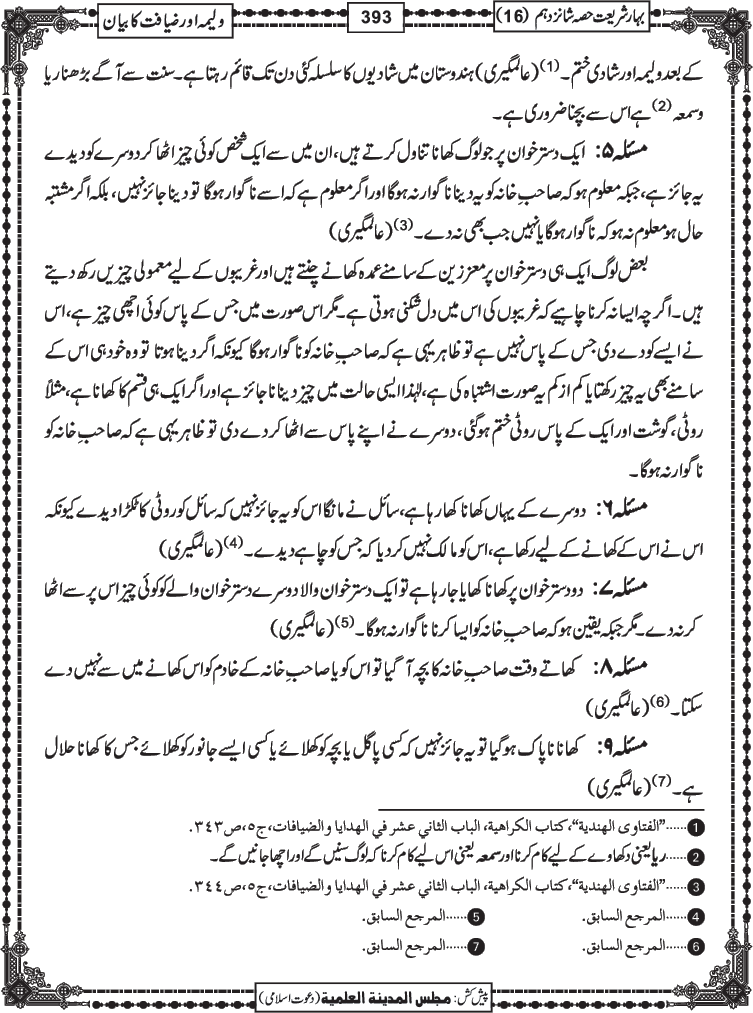 بہار شریعت حصہ شانزدہم (16)
393
ولیمہ اور ضیافت کا بیان
کے بعد ولیمہ اور شادی ختم۔(1) (عالمگیری) ہندوستان میں شادیوں کا سلسلہ کئی دن تک قائم رہتا ہے۔ سنت سے آگے بڑھنا ریا
و سمعہ (2) ہے اس سے بچنا ضروری ہے۔
مسئلہ ۵: ایک دسترخوان پر جو لوگ کھانا تناول کرتے ہیں، ان میں سے ایک شخص کوئی چیز اٹھا کر دوسرے کو دیدے
یہ جائز ہے، جبکہ معلوم ہو کہ صاحبِ خانہ کو یہ دینا ناگوار نہ ہوگا اور اگر معلوم ہے کہ اسے ناگوار ہوگا تو دینا جائز نہیں، بلکہ اگر مشتبہ
حال ہو معلوم نہ ہو کہ ناگوار ہوگا یا نہیں جب بھی نہ دے۔(3) (عالمگیری)
بعض لوگ ایک ہی دسترخوان پر معززین کے سامنے عمدہ کھانے چنتے ہیں اور غریبوں کے لیے معمولی چیزیں رکھ دیتے
ہیں۔ اگرچہ ایسا نہ کرنا چاہیے کہ غریبوں کی اس میں دل شکنی ہوتی ہے۔ مگر اس صورت میں جس کے پاس کوئی اچھی چیز ہے، اس
نے ایسے کو دے دی جس کے پاس نہیں ہے تو ظاہر یہی ہے کہ صاحبِ خانہ کو ناگوار ہوگا کیونکہ اگر دینا ہوتا تو وہ خود ہی اس کے
سامنے بھی یہ چیز رکھتا یا کم از کم یہ صورت اشتباہ کی ہے، لہٰذا ایسی حالت میں چیز دینا ناجائز ہے اور اگر ایک ہی قسم کا کھانا ہے، مثلاً
روٹی، گوشت اور ایک کے پاس روٹی ختم ہوگئی، دوسرے نے اپنے پاس سے اٹھا کر دے دی تو ظاہر یہی ہے کہ صاحبِ خانہ کو
ناگوار نہ ہوگا۔
مسئلہ ۶: دوسرے کے یہاں کھانا کھا رہا ہے، سائل نے مانگا اس کو یہ جائز نہیں کہ سائل کو روٹی کا ٹکڑا دیدے کیونکہ
اس نے اس کے کھانے کے لیے رکھا ہے، اس کو مالک نہیں کر دیا کہ جس کو چاہے دیدے۔(4) (عالمگیری)
مسئلہ ۷: دو دسترخوان پر کھانا کھایا جا رہا ہے تو ایک دسترخوان والا دوسرے دسترخوان والے کو کوئی چیز اس پر سے اٹھا
کر نہ دے۔ مگر جبکہ یقین ہو کہ صاحبِ خانہ کو ایسا کرنا ناگوار نہ ہوگا۔(5) (عالمگیری)
مسئلہ ۸: کھاتے وقت صاحبِ خانہ کا بچہ آ گیا تو اس کو یا صاحبِ خانہ کے خادم کو اس کھانے میں سے نہیں دے
سکتا۔(6) (عالمگیری)
مسئلہ ۹: کھانا ناپاک ہوگیا تو یہ جائز نہیں کہ کسی پاگل یا بچہ کو کھلائے یا کسی ایسے جانور کو کھلائے جس کا کھانا حلال
ہے۔(7) (عالمگیری)
1 ......"الفتاوی الهندية"، كتاب الكراهية، الباب الثاني عشر في الهدايا والضيافات، ج٥، ص٣٤٣.
2 ......ریا یعنی دکھاوے کے لیے کام کرنا اور سمعہ یعنی اس لیے کام کرنا کہ لوگ سنیں گے اور اچھا جانیں گے۔
3 ......"الفتاوی الهندية"، كتاب الكراهية، الباب الثاني عشر في الهدايا والضيافات، ج٥، ص٣٤٤.
4 ......المرجع السابق. 5 ......المرجع السابق.
6 ......المرجع السابق. 7 ......المرجع السابق.
پیش کش: مجلس المدينة العلمية (دعوت اسلامی)